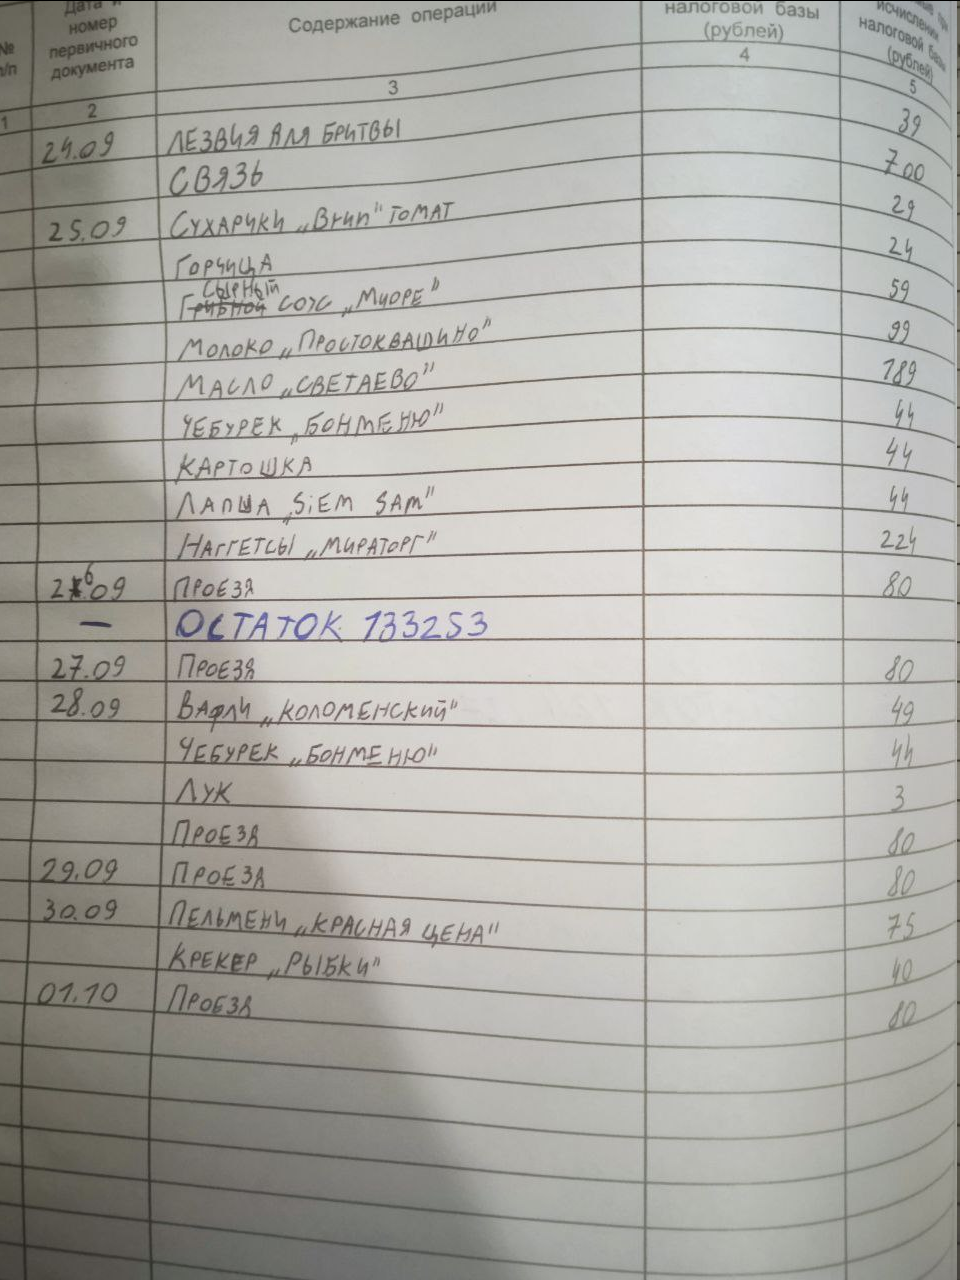 № п/п
Дата и номер первичного документа
Содержание операции
налоговой базы (рублей)
исчислении налоговой базы (рублей)
1 2 3 4 5
24.09 ЛЕЗВИЯ ДЛЯ БРИТВЫ 39
СВЯЗЬ 700
25.09 СУХАРИКИ „Вгип" ТОМАТ 29
ГОРЧИЦА 24
СЫРНЫЙ
ГРИБНОЙ СОУС „МИОРЕ" 59
МОЛОКО „ПРОСТОКВАШИНО" 99
МАСЛО „СВЕТАЕВО" 189
ЧЕБУРЕК „БОНМЕНЮ" 44
КАРТОШКА 44
ЛАПША „SiEM SAM" 44
НАГГЕТСЫ „МИРАТОРГ" 224
26.09 ПРОЕЗД 80
— ОСТАТОК 133253
27.09 ПРОЕЗД 80
28.09 ВАФЛИ „КОЛОМЕНСКИЙ" 49
ЧЕБУРЕК „БОНМЕНЮ" 44
ЛУК 3
ПРОЕЗД 80
29.09 ПРОЕЗД 80
30.09 ПЕЛЬМЕНИ „КРАСНАЯ ЦЕНА" 75
КРЕКЕР „РЫБКИ" 40
01.10 ПРОЕЗД 80